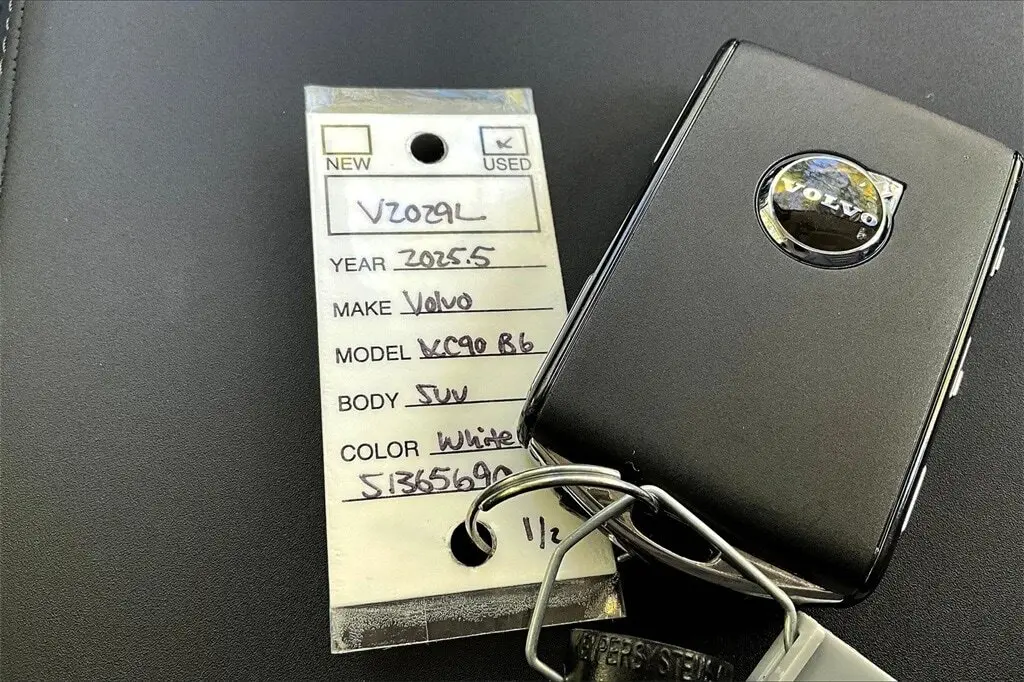 NEW USED
V2029L
YEAR 2025.5
MAKE Volvo
MODEL XC90 B6
BODY SUV
COLOR White
S1365690
1/2
VOLVO